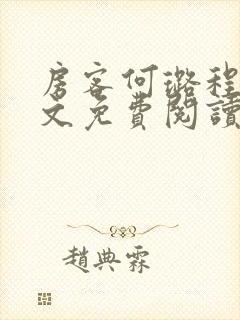 房客何璐程
文免費閱讀
趙典霖